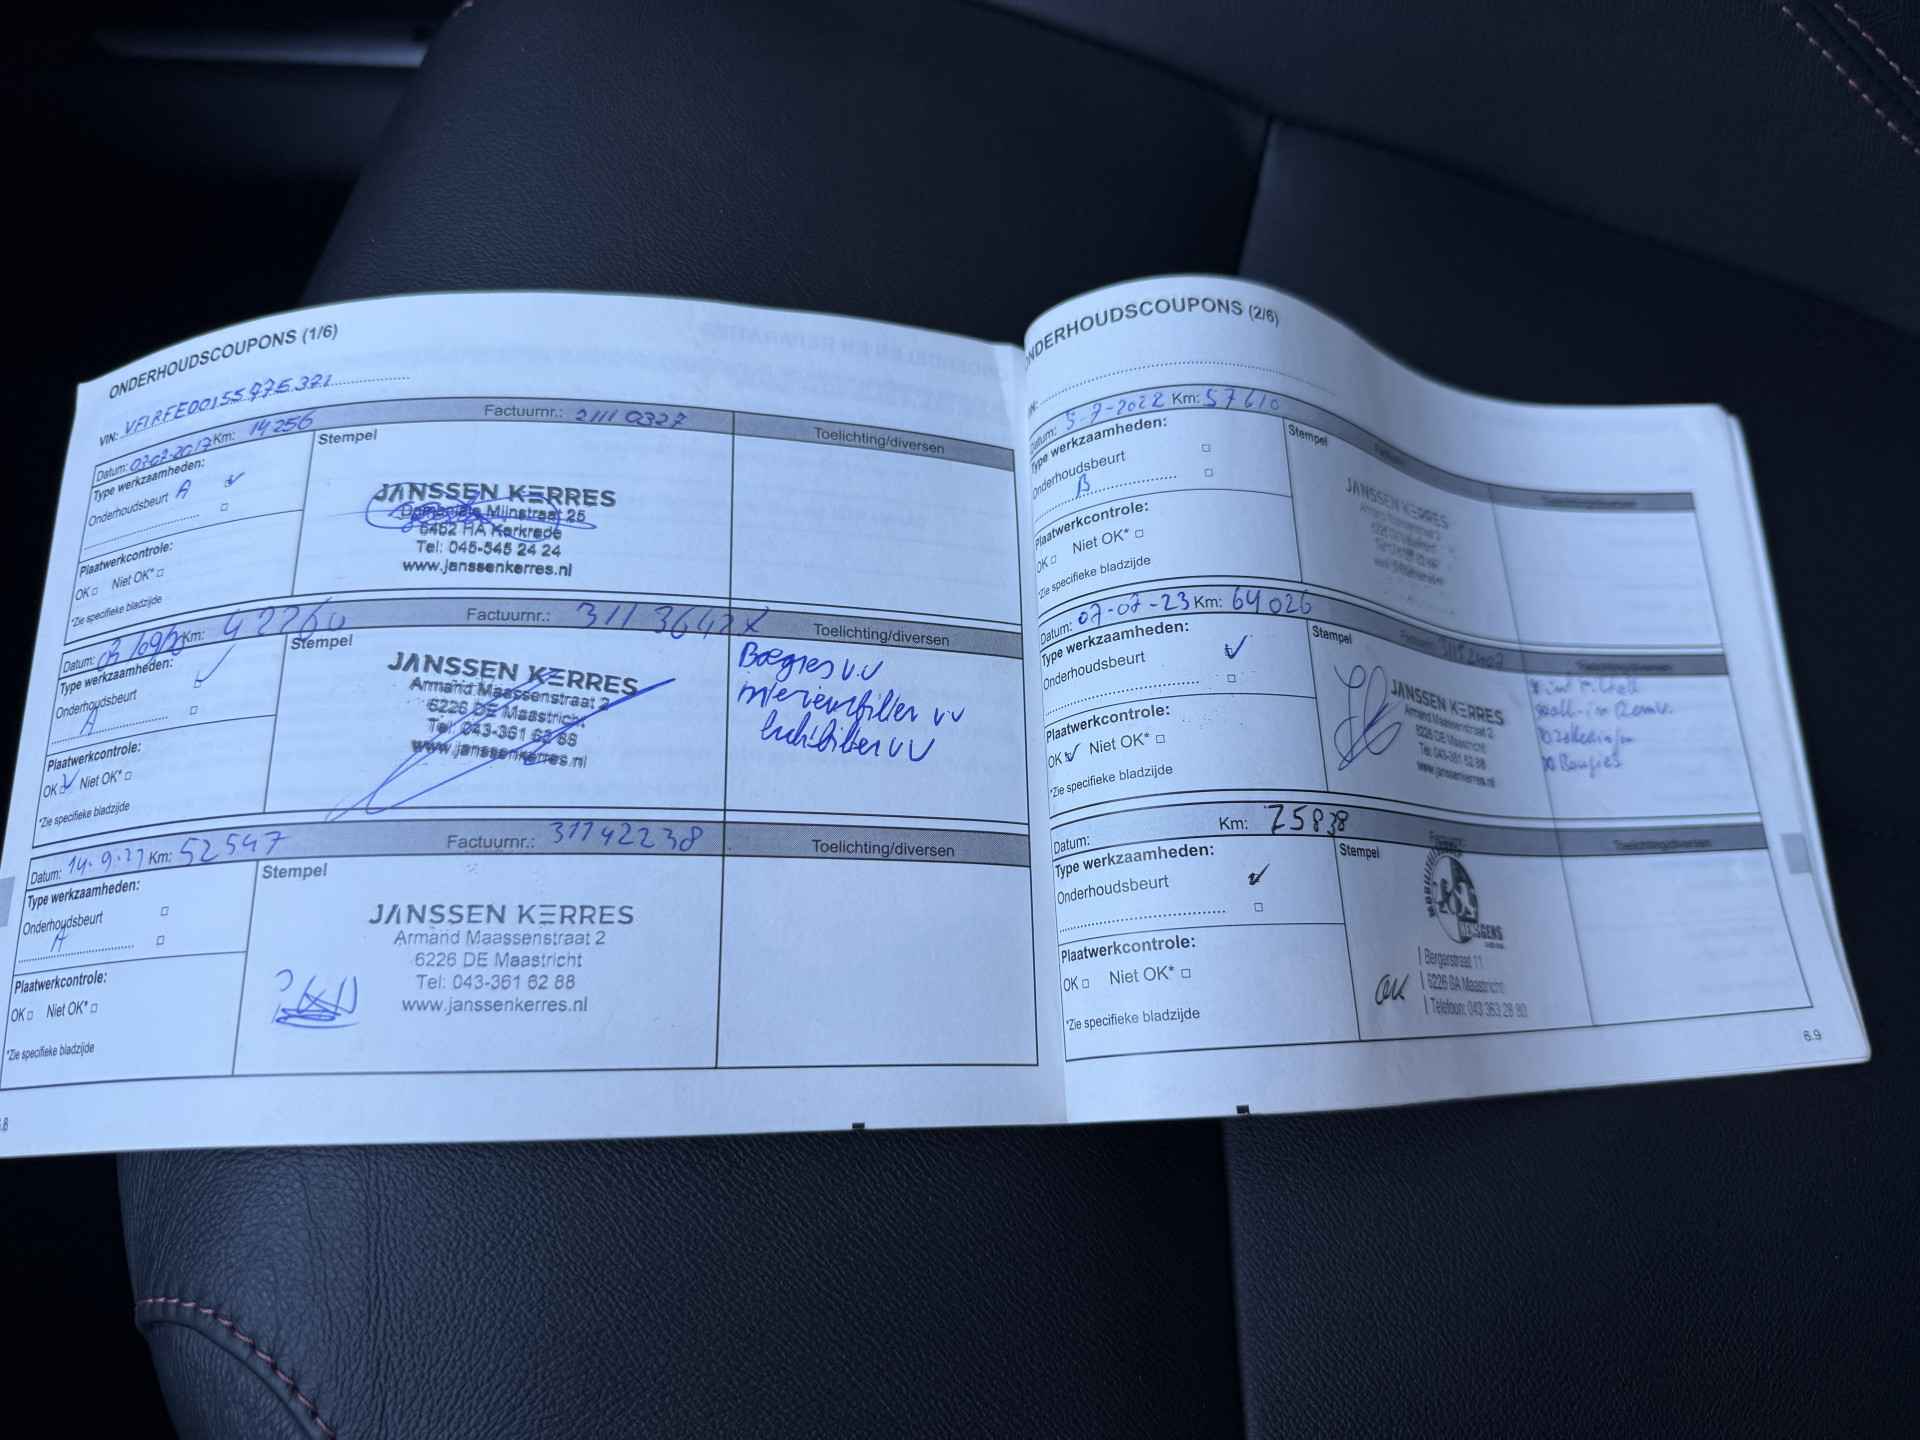 ONDERHOUDSCOUPONS (1/6)
VIN: VF1RFE00155975371
Datum: 03-02-2017 Km: 14256 Factuurnr.: 21110327
Type werkzaamheden:
Onderhoudsbeurt A
Plaatwerkcontrole:
OK Niet OK*
*Zie specifieke bladzijde
Stempel
JANSSEN KERRES
Domaniale Mijnstraat 25
6462 HA Kerkrade
Tel: 045-545 24 24
www.janssenkerres.nl
Toelichting/diversen
Datum: Km: 42260 Factuurnr.:
Type werkzaamheden:
Onderhoudsbeurt
A
Plaatwerkcontrole:
OK Niet OK*
*Zie specifieke bladzijde
Stempel
JANSSEN KERRES
Armand Maassenstraat 2
6226 DE Maastricht
Tel: 043-361 62 88
www.janssenkerres.nl
Toelichting/diversen
Boegies VV
interieurfilter VV
luchtfilter VV
Datum: Km: 52547 Factuurnr.: 31142238
Type werkzaamheden:
Onderhoudsbeurt
A
Plaatwerkcontrole:
OK Niet OK*
*Zie specifieke bladzijde
Stempel
JANSSEN KERRES
Armand Maassenstraat 2
6226 DE Maastricht
Tel: 043-361 62 88
www.janssenkerres.nl
Toelichting/diversen
ONDERHOUDSCOUPONS (2/6)
Datum: 5-7-2022 Km: 57610
Type werkzaamheden:
Onderhoudsbeurt
B
Plaatwerkcontrole:
OK Niet OK*
*Zie specifieke bladzijde
Stempel
JANSSEN KERRES
Toelichting/diversen
Datum: 07-07-23 Km: 64026
Type werkzaamheden:
Onderhoudsbeurt
Plaatwerkcontrole:
OK Niet OK*
*Zie specifieke bladzijde
Stempel
JANSSEN KERRES
Armand Maassenstraat 2
6226 DE Maastricht
Tel: 043-361 62 88
www.janssenkerres.nl
Toelichting/diversen
Bougies
Datum: Km: 75838
Type werkzaamheden:
Onderhoudsbeurt
Plaatwerkcontrole:
OK Niet OK*
*Zie specifieke bladzijde
Stempel
HENSGENS
Bergerstraat 11
6226 BA Maastricht
Telefoon: 043 363 28 80
OK
Toelichting/diversen
6.9